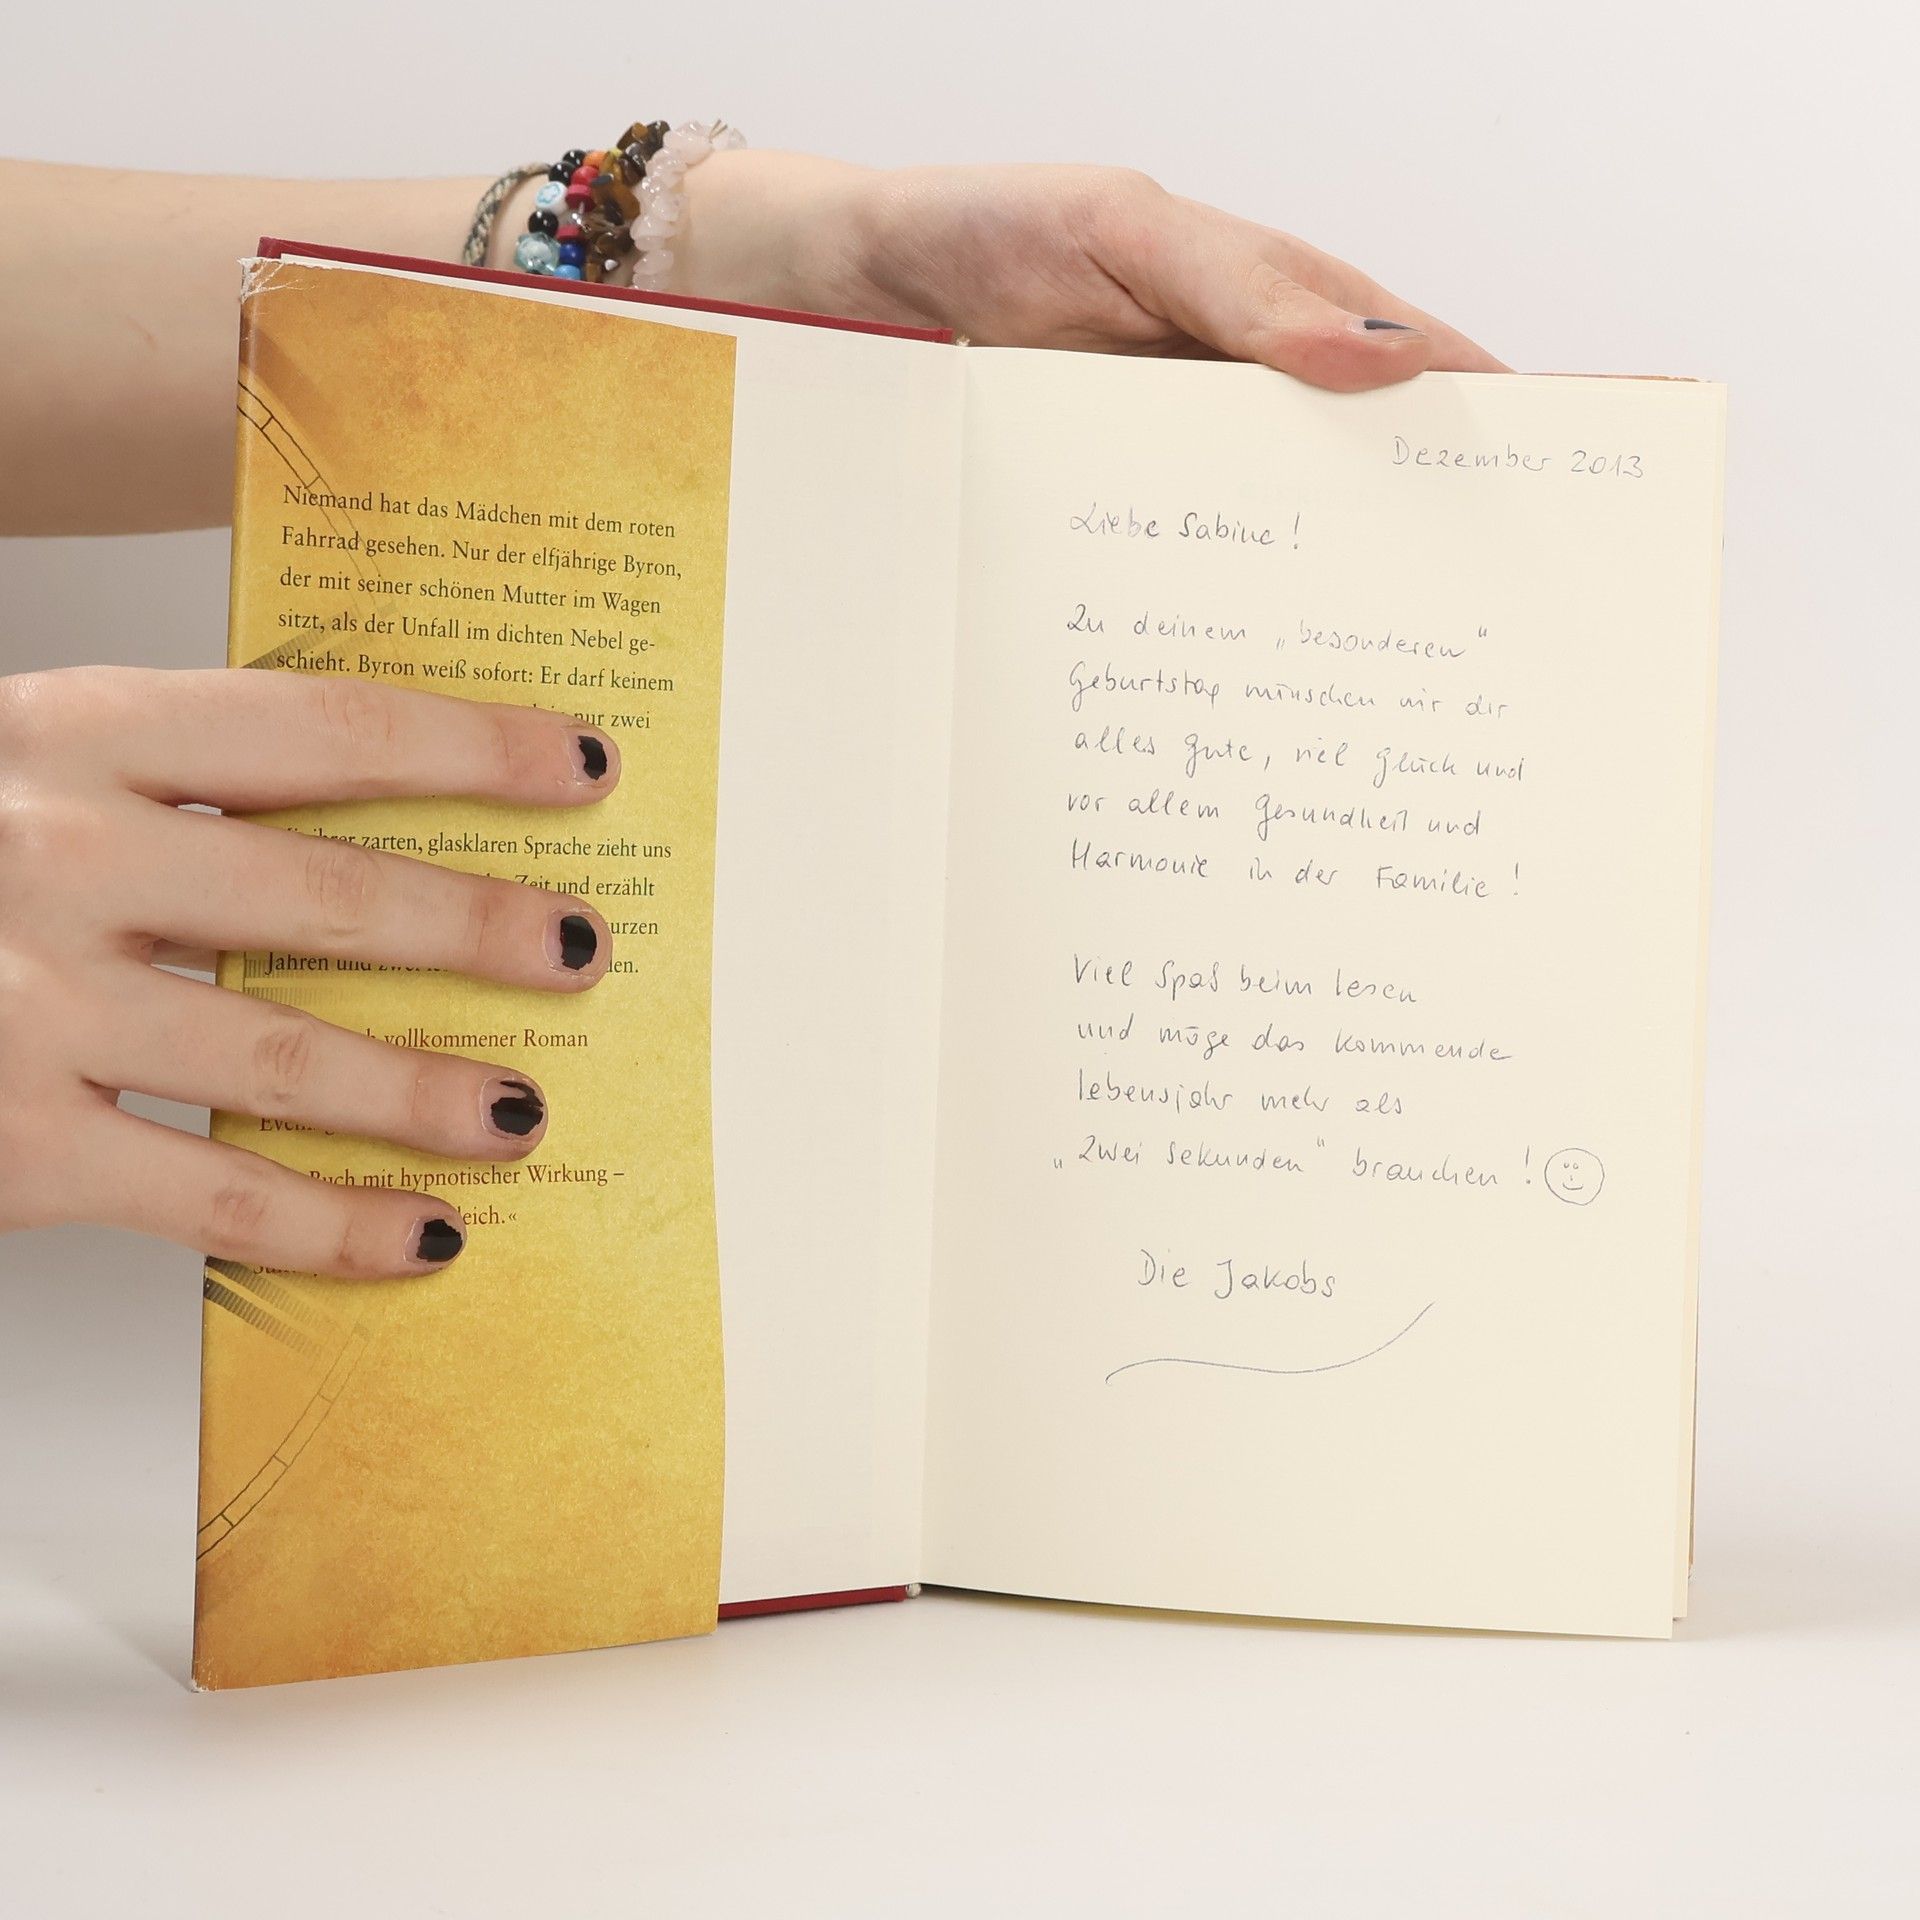 Niemand hat das Mädchen mit dem roten
Fahrrad gesehen. Nur der elfjährige Byron,
der mit seiner schönen Mutter im Wagen
sitzt, als der Unfall im dichten Nebel ge-
schieht. Byron weiß sofort: Er darf keinem
nur zwei
zarten, glasklaren Sprache zieht uns
Zeit und erzählt
Jahren und
vollkommener Roman
Buch mit hypnotischer Wirkung –
Dezember 2013
Liebe Sabine!
Zu deinem „besonderen"
Geburtstag wünschen wir dir
alles Gute, viel Glück und
vor allem Gesundheit und
Harmonie in der Familie!
Viel Spaß beim lesen
und möge das kommende
lebensjahr mehr als
„zwei Sekunden" brauchen!
Die Jakobs